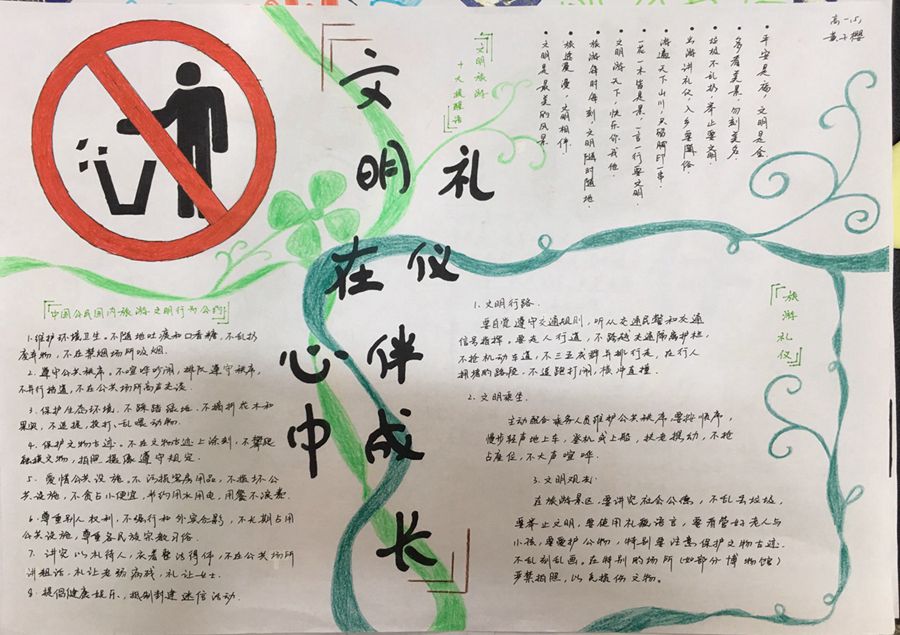 高一15,
黄子樱
文明在心中
礼仪伴成长
文明旅游
十大提醒语
平安是福,文明是金.
多看美景,勿刻美名.
垃圾不乱扔,举止要文明.
出游讲礼仪,入乡要随俗.
游遍天下山川,只留脚印一串.
一花一木皆是景,一言一行要文明.
文明游天下,快乐你我他.
旅游每时每刻,文明随时随地.
旅途漫漫,文明相伴.
文明是最美的风景
中国公民国内旅游文明行为公约
1.维护环境卫生.不随地吐痰和口香糖,不乱扔
废弃物,不在禁烟场所吸烟.
2.遵守公共秩序,不喧哗吵闹,排队遵守秩序,
不并行挡道,不在公共场所高声交谈.
3.保护生态环境.不踩踏绿地.不摘折花木和
果实,不追捉、投打、乱喂动物.
4.保护文物古迹.不在文物古迹上涂刻,不攀爬
触摸文物,拍照摄像遵守规定.
5.爱惜公共设施.不污损客房用品,不损坏公
共设施,不贪占小便宜,节约用水用电,用餐不浪费.
6.尊重别人权利,不强行和外宾合影,不长期占用
公共设施,尊重各民族宗教习俗.
7.讲究以礼待人,衣着整洁得体,不在公共场所
讲粗话,礼让老弱病残,礼让女士.
8.提倡健康娱乐,抵制封建迷信活动.
旅游礼仪
1.文明行路.
要自觉遵守交通规则,听从交通民警和交通
信号指挥.要走人行道,不跨越交通隔离护栏,
不抢机动车道,不三五成群并排行走,在行人
拥挤的路段,不追跑打闹,横冲直撞.
2.文明乘坐.
主动配合乘务人员维护公共秩序,要按顺序,
慢步轻声地上车、登机或上船,扶老携幼,不抢
占座位,不大声喧哗.
3.文明观光.
在旅游景区,要讲究社会公德,不乱丢垃圾,
要举止文明,要使用礼貌语言,要看管好老人与
小孩,要爱护公物,特别要注意保护文物古迹.
不乱刻乱画.在特别的场所(如部分博物馆)
严禁拍照,以免损伤文物.